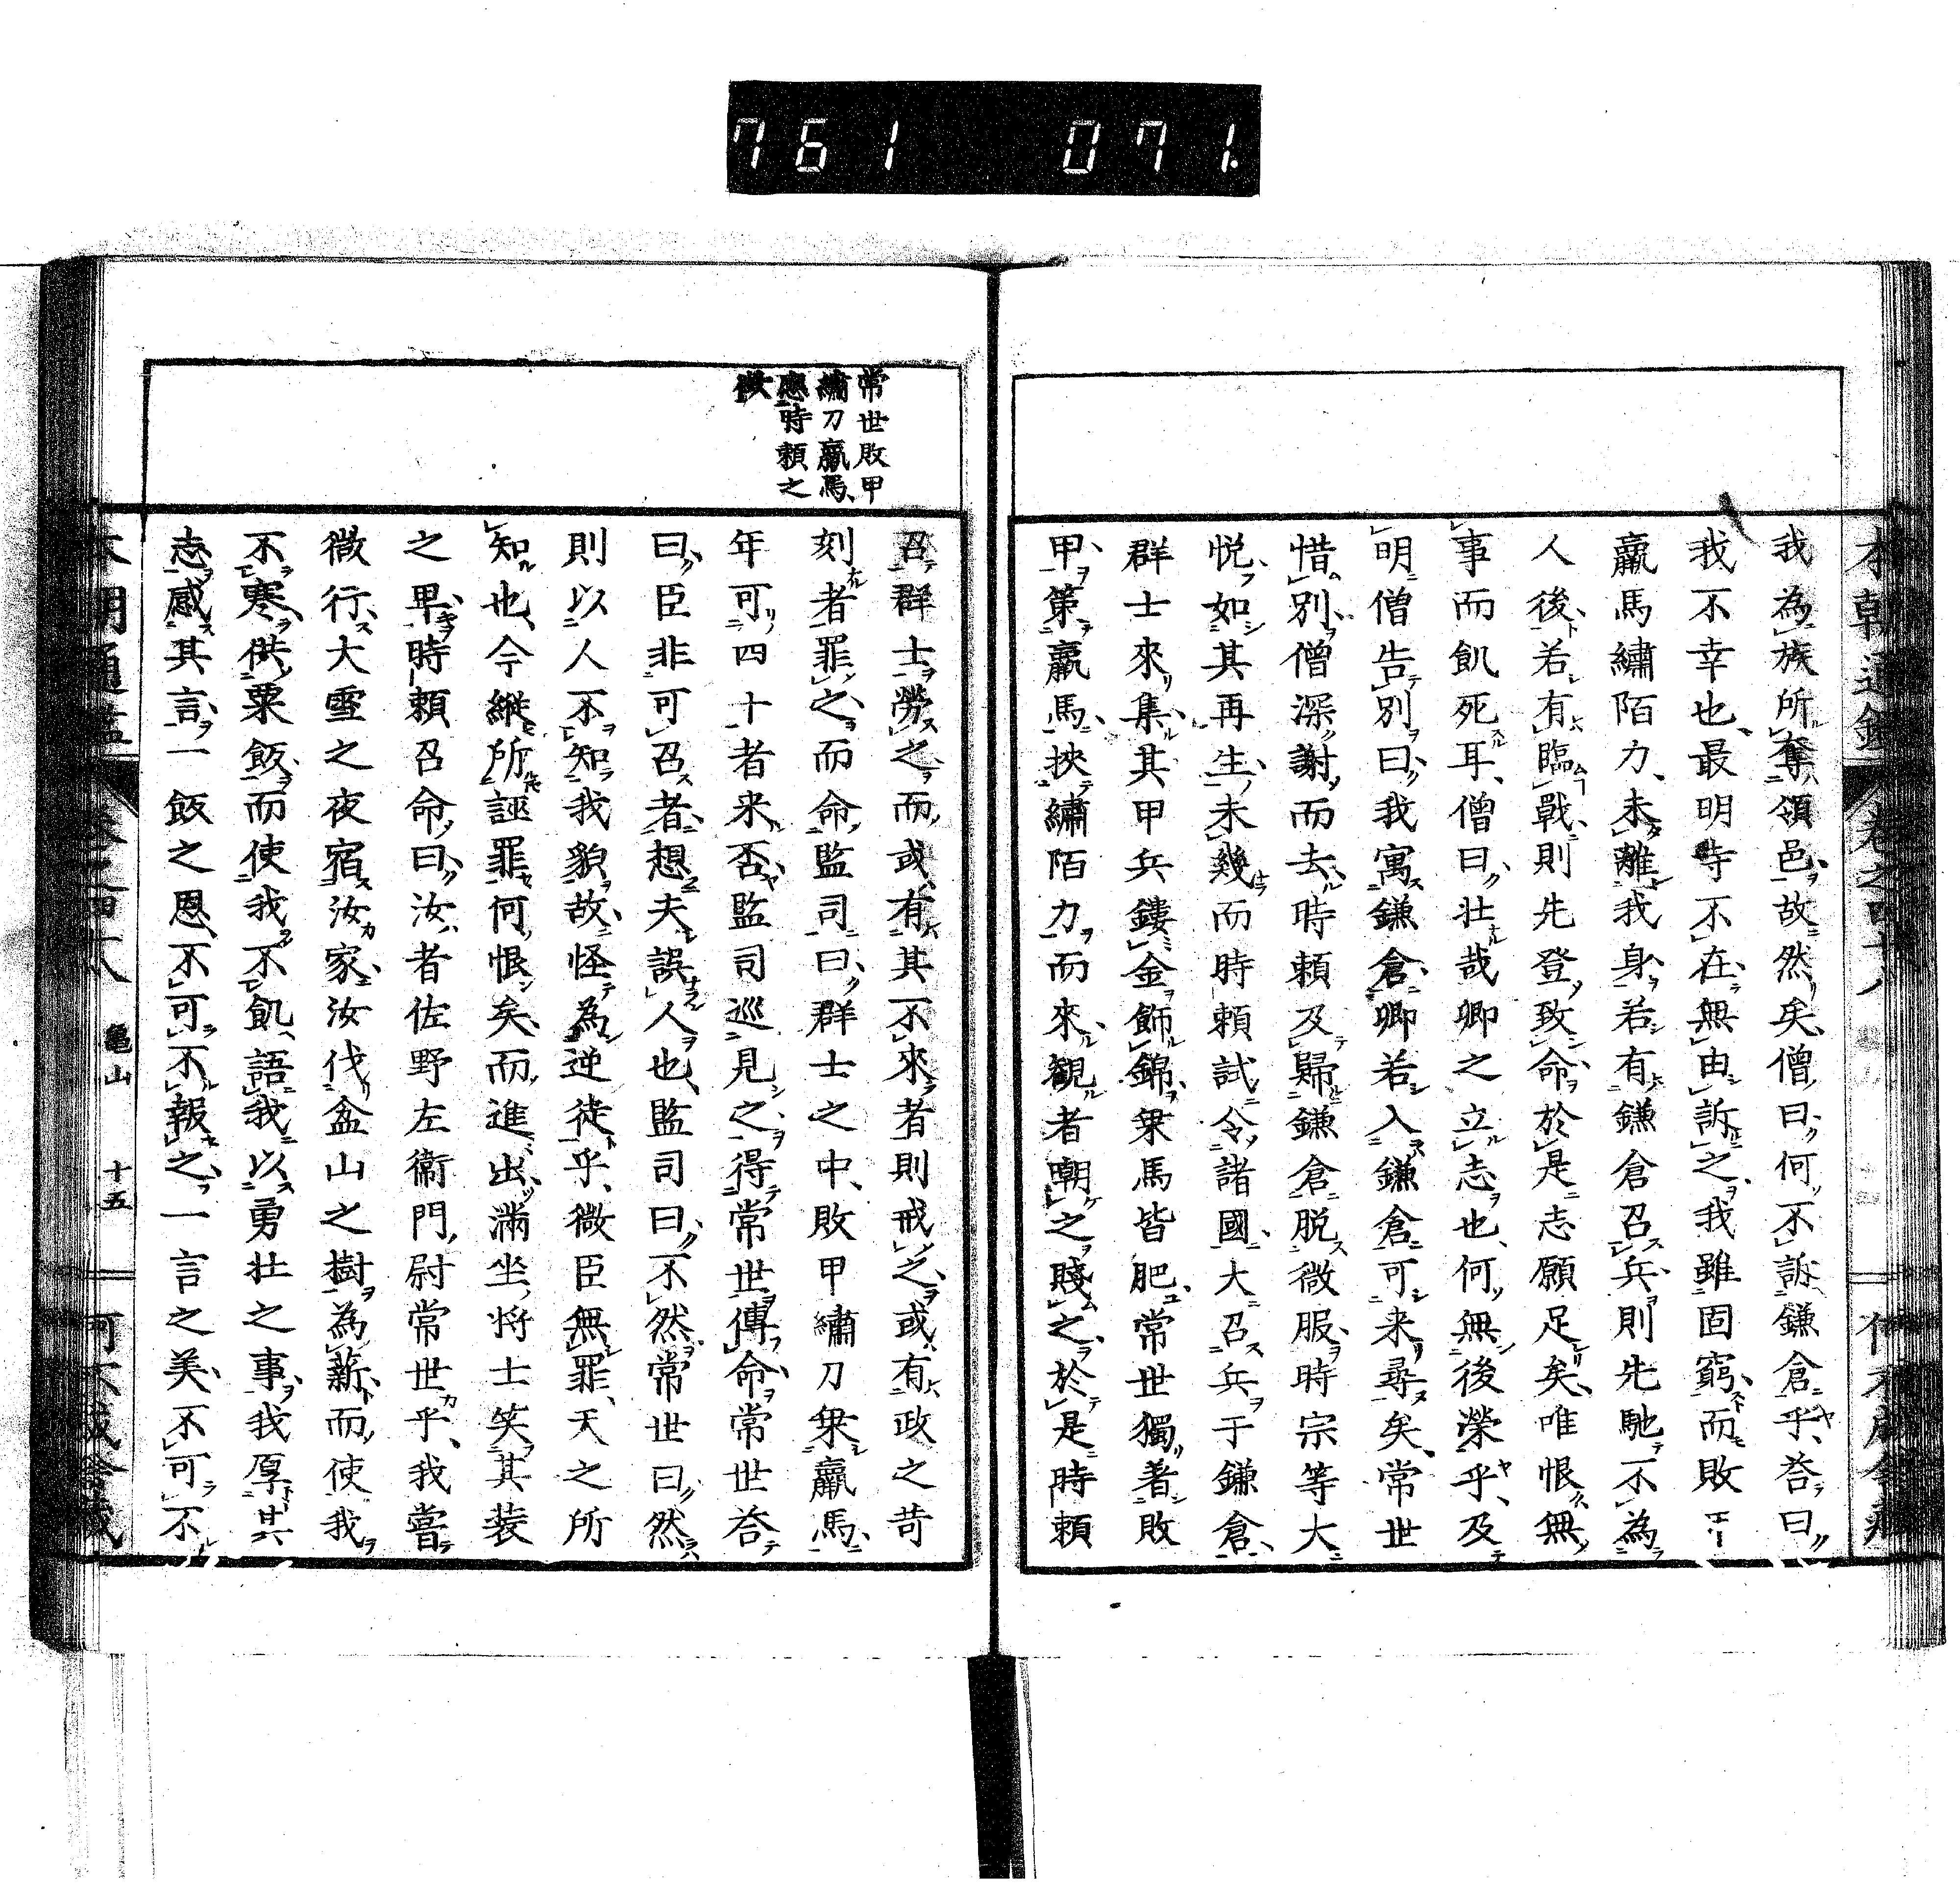 761 071
我為族所奪領邑故然矣僧曰何不訴鎌倉乎答曰
我不幸也最明寺不在無由訴之我雖固窮而敗
羸馬繡陌力未離我身若有鎌倉召兵則先馳不為
人後若有臨戰則先登致命於是志願足矣唯恨無
事而飢死耳僧曰壮哉卿之立志也何無後榮乎及
明僧告別曰我寓鎌倉卿若入鎌倉可来尋矣常世
惜別僧深謝而去時頼及歸鎌倉脱微服時宗等大
悦如其再生未幾而時頼試令諸國大召兵于鎌倉
群士來集其甲兵鏤金飾錦椉馬皆肥常世獨著敗
甲策羸馬挾繡陌力而來觀者嘲之賤之於是時頼
常世敗甲
繡刀羸馬
應時頼之
徴
召群士勞之而或有其不來者則戒之或有政之苛
刻者罪之而命監司曰群士之中敗甲繡刀椉羸馬
年可四十者来否監司巡見之得常世傳命常世答
曰臣非可召者想夫誤人也監司曰不然常世曰然
則以人不知我貌故怪為逆徒乎微臣無罪天之所
知也今縦所誣罪何恨矣而進出滿坐將士笑其装
之早時頼召命曰汝者佐野左衛門尉常世乎我嘗
微行大雪之夜宿汝家汝伐盆山之樹為薪而使我
不寒供粟飯而使我不飢語我以勇壮之事我厚其
志感其言一飯之恩不可不報之一言之美不可不
本朝通鑑 卷之四十八 亀山 十五